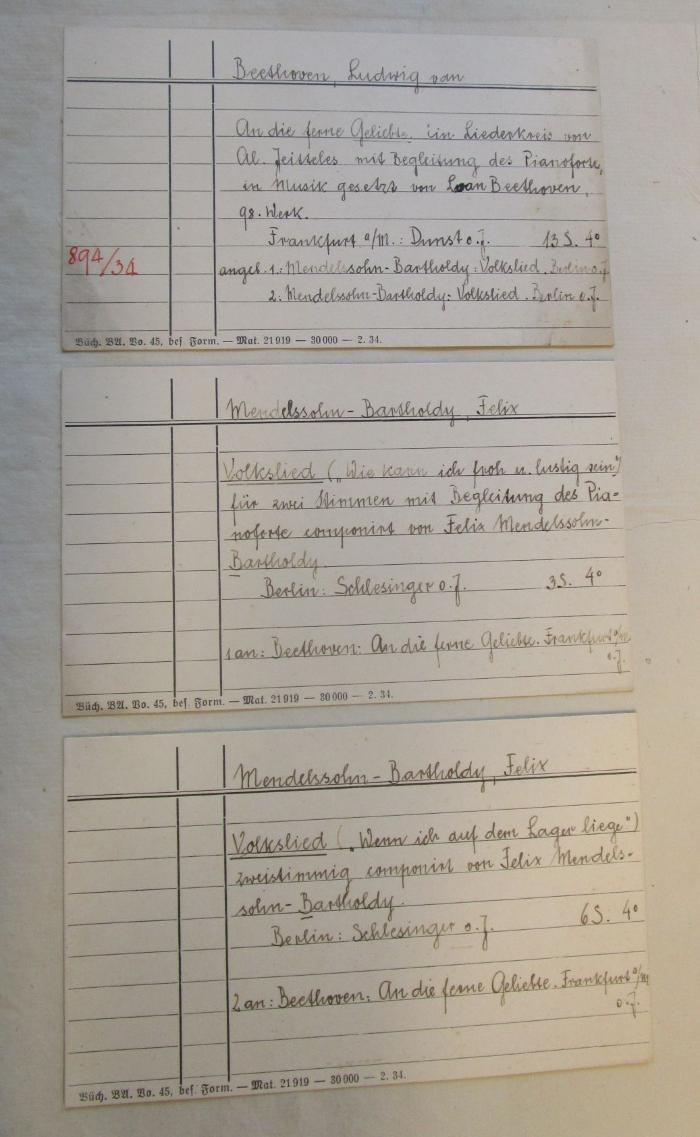 Beethoven, Ludwig van
An die ferne Geliebte. ein Liederkreis von
Al. Jeitteles mit Begleitung des Pianoforte,
in Musik gesetzt von L. van Beethoven.
98. Werk.
Frankfurt a/M.: Dunst o.J. 13 S. 4°
894/34
angeb. 1: Mendelssohn-Bartholdy: Volkslied. Berlin o.J.
2: Mendelssohn-Bartholdy: Volkslied. Berlin o.J.
Büch. BA. Vo. 45, bes. Form. — Mat. 21919 — 30000 — 2. 34.
Mendelssohn-Bartholdy, Felix
Volkslied („Wie kann ich froh u. lustig sein")
für zwei Stimmen mit Begleitung des Pia=
noforte componirt von Felix Mendelssohn-
Bartholdy.
Berlin: Schlesinger o.J. 3 S. 4°
1 an: Beethoven: An die ferne Geliebte. Frankfurt a/M
o.J.
Büch. BA. Vo. 45, bes. Form. — Mat. 21919 — 30000 — 2. 34.
Mendelssohn-Bartholdy, Felix
Volkslied („Wenn ich auf dem Lager liege")
zweistimmig componirt von Felix Mendels-
sohn-Bartholdy.
Berlin: Schlesinger o.J. 6 S. 4°
2 an: Beethoven: An die ferne Geliebte. Frankfurt a/M
o.J.
Büch. BA. Vo. 45, bes. Form. — Mat. 21919 — 30000 — 2. 34.